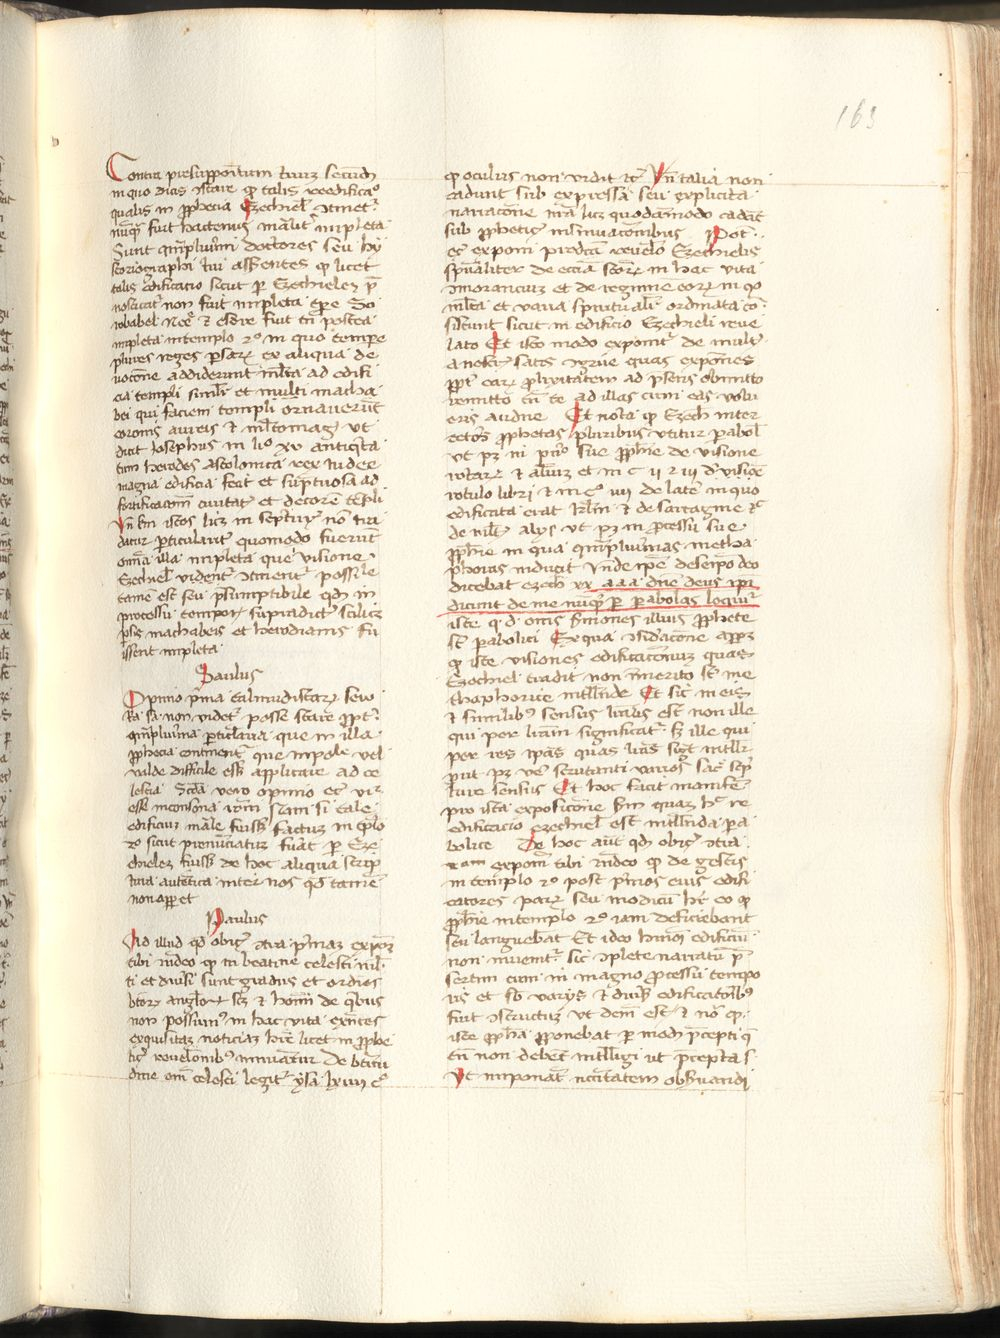 163
Contra presuppositum tuum secundum
in quo dicis stare q talis reedificatio
qualis in prophecia Ezechiel continetur
nunquam fuit hactenus materialiter impleta
Sunt quamplurimi doctores seu hy
storiographi tui assentes q licet
talis edificatio sicut per Ezechielem pre
noscitatur non fuit impleta tempore So
robabel Neemie et esdre fuit tamen postea
impleta in templo 2o in quo tempore
plures reges persarum ex aliqua de
uocione addiderunt multa ad edifi
cia templi similiter et multi macha
bei qui faciem templi ornauerunt
coronis aureis et multomagis ut
dicit Iosephus in lio xv antiquita
tum herodes Ascolonita rex Iudee
magna edificia fecit et sumptuosa ad
fortificationem ciuitatis et decorem templi
Vnde secundum istos licet in scriptura non tra
datur particulariter quomodo fuerunt
omnia illa impleta que in visione
Ezechiel videntur contineri possibile
tamen est seu presumptibile quod in
processu temporis supradictis scilicet
persis machabeis et herodianis fu
issent impleta
Saulus
Opinio prima talmudistarum seu
Ra sa non videtur posse stare propter
quamplurima particularia que in illa
prophecia continentur que impossibile vel
valde difficile esset applicare ad ce
lestia Secunda vero opinio etiam videtur
esse inconsona rationi nam si tale
edificium materiale fuisset factum in templo
2o sicut prenunciatur fuerat per Eze
chielem fuisset de hoc aliqua scrip
tura autentica inter nos quod tamen
non apparet
Paulus
Ad illud quod obicis contra primam expositionem
tibi respondeo q in beatitudine celesti mul
ti et diuersi sunt gradus et ordines
beatorum angelorum scilicet et hominum de quibus
non possumus in hac vita existentes
exquisitam noticiam habere licet in prophe
ticis reuelationibus innuantur De beatitudine
dine enim celesti legitur ysa lxiiii co
q oculus non vidit etc Vnde talia non
cadunt sub expressa seu explicita
narracione materia licet quodammodo cadant
sub propheticis insinuacionibus Potest
etiam exponi predicta reuelatio Ezechielis
spiritualiter de ecclesia sanctorum in hac vita
immorancium et de regimine eorum in quo
multa et varia spiritualiter ordinata con
sistunt sicut in edificio Ezechieli reue
lato Et isto modo exponitur de multis
a nostris satis congrue quas expositiones
propter earum prolixitatem ad presens obmitto
remitto tamen te ad illas cum eas volu
eris audire Et nota q Ezech inter
ceteros prophetas pluribus vtitur parabolis
ut patet in principio sue prophecie de visione
rotarum et alium et in c ii et iii de visione
rotulo libri et in co iiii de latere in quo
edificata erat Ierusalem et de sartagine etc
de multis alijs ut patet in processu sue
prophecie in qua quamplurimas metha
phoras inducit Vnde ipse de seipso deo
dicebat ezech xx a a a domine deus ipsi
dicunt de me nunquid per parabolas loquitur
iste q d omnes sermones illius prophete
sunt parabolici Ex qua consideracione apparet
q iste visiones edificationum quas
Ezechiel tradit non immerito sunt me
thaphorice intelligende Et sic in eis
et similibus sensus literalis est non ille
qui per literam significatur sed ille qui
per res ipsas quas litera signat intelligitur
prout patet vere scrutanti varios sacre scrip
ture sensus Et hoc facit manifeste
pro ista exposicione secundum quam hec re
edificacio ezechiel est intelligenda para
bolice De hoc autem quod obicis contra
expositionem tibi respondeo q de gestis
in templo 2o post primos eius edifi
catores parum seu modicum habetur eo q
prophecie in templo 2o iam deficiebant
seu languebant Et ideo huiusmodi edificium
non inuenitur sic complete narratum pre
sertim cum in magno processu tempo
ris et sub varijs et diuersis edificatoribus
fuit constructum ut deinde est et non q
iste propheta proponebat per modum precepti que
tamen non debent intelligi ut precepta s
Vt imponant necessitatem obseruandi